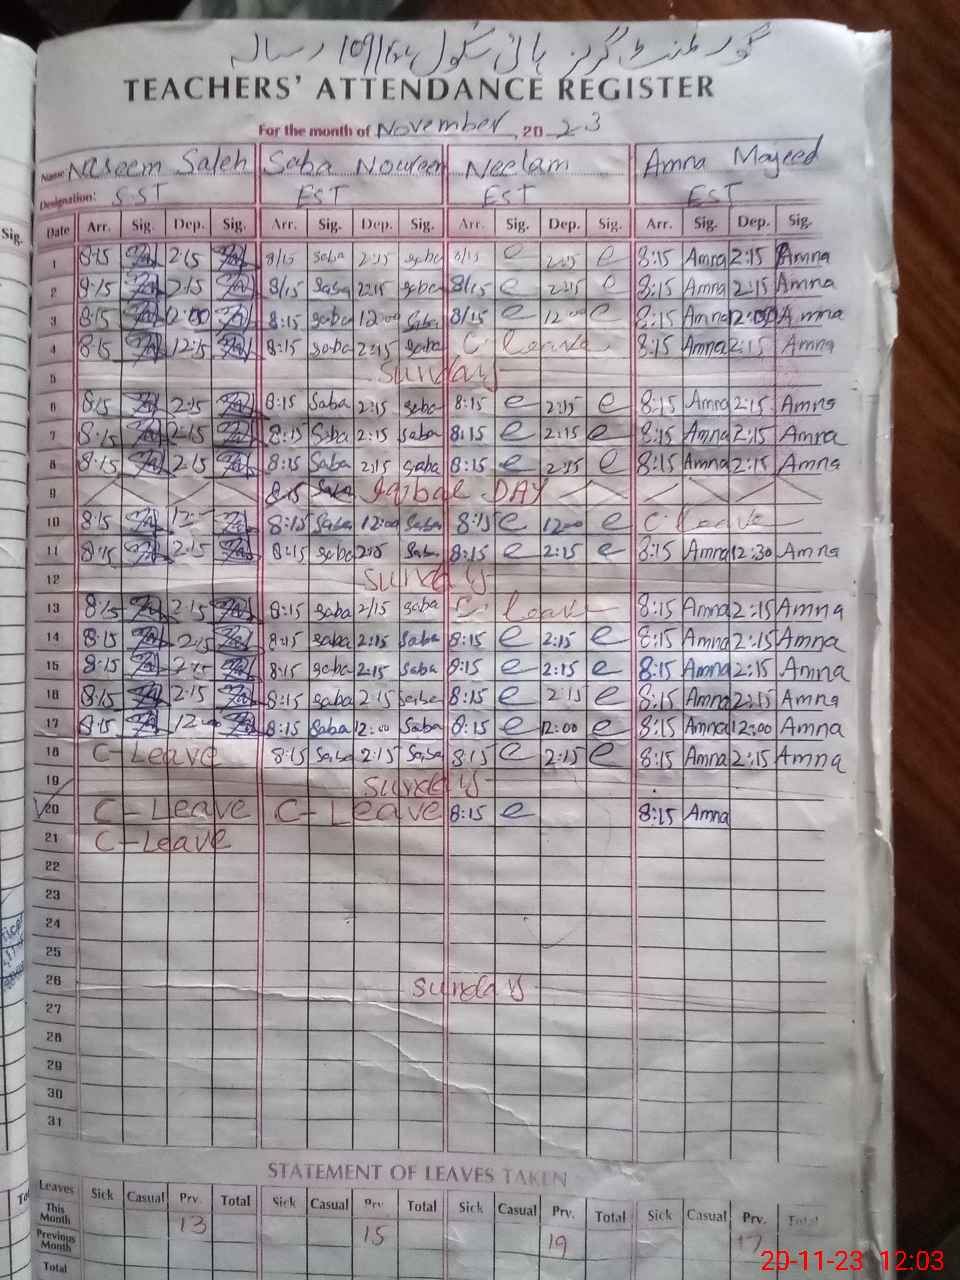 گورنمنٹ گرلز ہائی سکول
TEACHERS' ATTENDANCE REGISTER
For the month of November, 2023
Name Naseem Saleh Saba Noureen Neelam Amna Majeed
Designation: SST EST EST EST
Sig. Date Arr. Sig. Dep. Sig. Arr. Sig. Dep. Sig. Arr. Sig. Dep. Sig. Arr. Sig. Dep. Sig.
1 8:15 2:15 8/15 saba 2:15 saba 8/15 e 2:15 e 8:15 Amna 2:15 Amna
2 8:15 2:15 8/15 saba 2:15 saba 8/15 e 2:15 e 8:15 Amna 2:15 Amna
3 8:15 12:00 8:15 saba 12:00 Saba 8/15 e 12:00 e 8:15 Amna 12:00 Amna
4 8:15 12:15 8:15 saba 2:15 saba C- leave 8:15 Amna 2:15 Amna
5 Sunday
6 8:15 2:15 8:15 Saba 2:15 saba 8:15 e 2:15 e 8:15 Amna 2:15 Amna
7 8:15 2:15 8:15 Saba 2:15 saba 8:15 e 2:15 e 8:15 Amna 2:15 Amna
8 8:15 2:15 8:15 Saba 2:15 saba 8:15 e 2:15 e 8:15 Amna 2:15 Amna
9 8:15 Saba Iqbal DAY
10 8:15 12:- 8:15 Saba 12:00 Saba 8:15 e 12:00 e C- Leave
11 8:15 2:15 8:15 saba 2:15 Saba 8:15 e 2:15 e 8:15 Amna 12:30 Amna
12 sunday
13 8:15 2:15 8:15 saba 2/15 saba C- leave 8:15 Amna 2:15 Amna
14 8:15 2:15 8:15 saba 2:15 Saba 8:15 e 2:15 e 8:15 Amna 2:15 Amna
15 8:15 2:15 8:15 saba 2:15 Saba 8:15 e 2:15 e 8:15 Amna 2:15 Amna
16 8:15 2:15 8:15 saba 2:15 saba 8:15 e 2:15 e 8:15 Amna 2:15 Amna
17 8:15 12:00 8:15 Saba 12:00 Saba 8:15 e 12:00 e 8:15 Amna 12:00 Amna
18 C-Leave 8:15 Saba 2:15 Saba 8:15 e 2:15 e 8:15 Amna 2:15 Amna
19 sunday
20 C-Leave C-Leave 8:15 e 8:15 Amna
21 C-Leave
22
23
24
25
26 sunday
27
28
29
30
31
STATEMENT OF LEAVES TAKEN
Leaves Sick Casual Prv. Total Sick Casual Prv. Total Sick Casual Prv. Total Sick Casual Prv. Total
This Month 13 15 19 17
Previous Month
Total
20-11-23 12:03